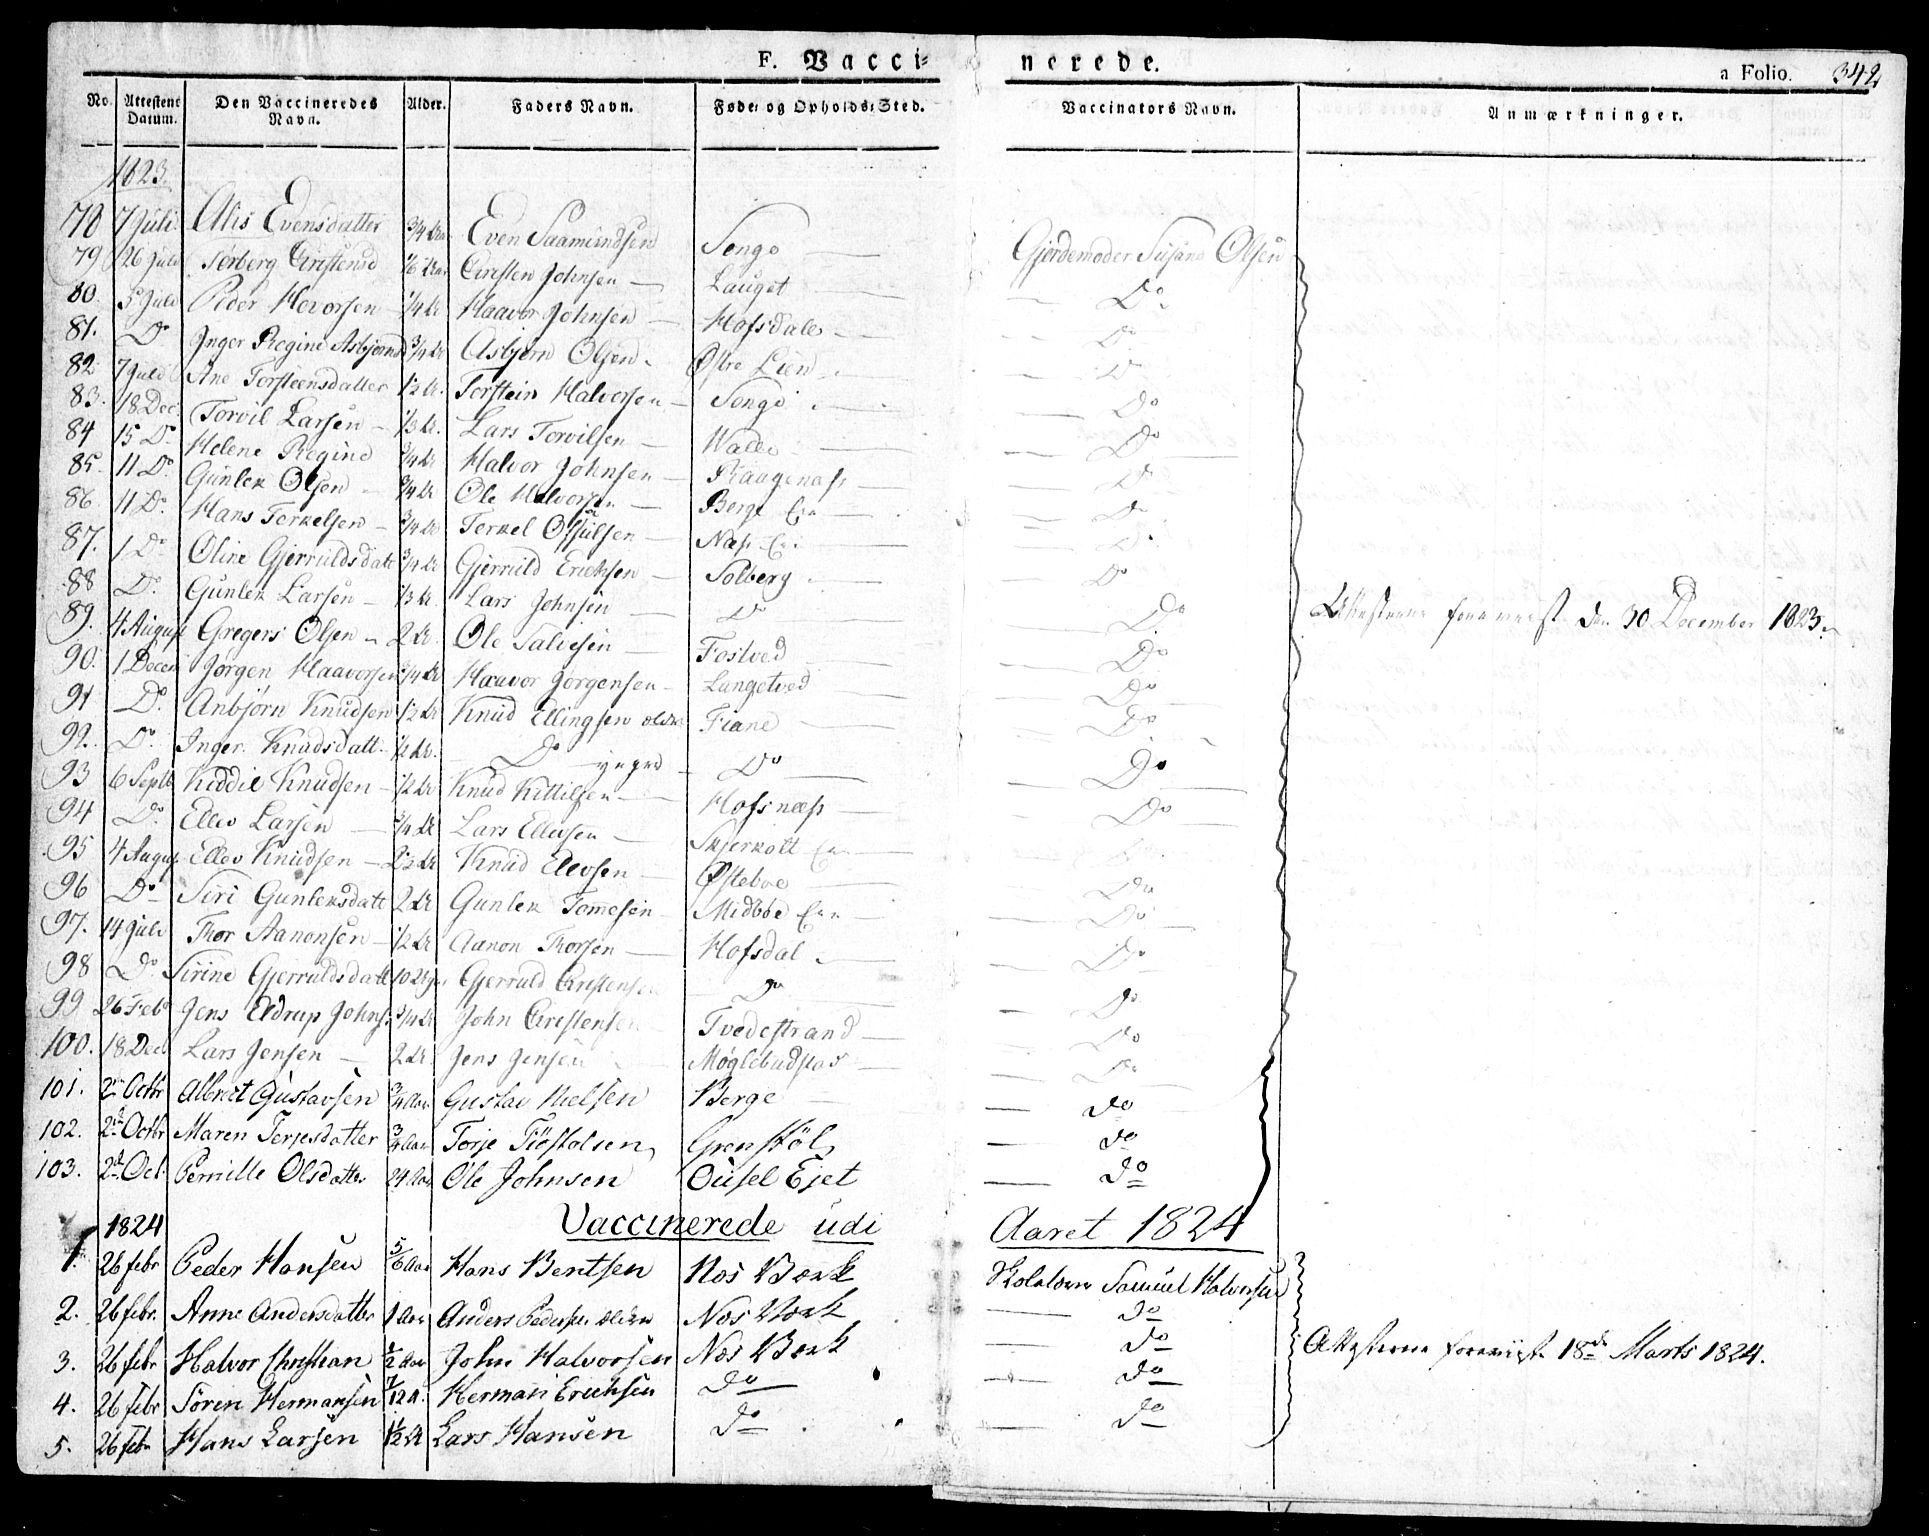 F. Vacci= nerede. a Folio. 342
No. Attestens Datum. Den Vaccineredes Navn. Alder. Faders Navn. Føde= og Opholds=Sted. Vaccinators Navn. Anmærkninger.
1823.
78 7 Juli Alis Evensdatter 3/4 Aar Even Saamundsen Songe Gjordemoder Susane Olsen
79 26 Juli Torberg Christensd Christen Johnsen Lauget Do
80. 5 Juli Peder Hevorsen 1/4 Ar Haavor Johnsen Hofsdalen Do
81. Do Inger Regine Asbjørnsd 3/4 Ar Asbjørn Olsen Østre Lien Do
82 7 Juli Ane Torsteensdatter 1/2 Ar. Torstein Halvorsen Songe Do
83. 18 Dec. Torvil Larsen 1/3 Ar. Lars Torvilsen Walle Do
84 15 Do Helene Regine 3/4 Ar Halvor Johnsen Kraagenæss Do
85. 11 Do. Gunlek Olsen 3/4 Ar Ole Halvorsen Berge Do
86. 11 Do. Hans Terkelsen 3/4 Ar Terkel Næss Do
87. 1 Do Oline Gjerruldsdatt 3/4 Ar Gjerruld Erichsen Solberg Do
88 Do. Gunlek Larsen 1/3 Ar. Lars Johnsen Do Do Attesterne foreviist den 30 December 1823.
89. 4 August Gregers Olsen 2 Ar. Ole Salvesen Fostved Do
90. 1 Decem Jørgen Haavorsen 3/4 Ar Haavor Jørgensen Langetved Do
91 Do. Anbjørn Knudsen 1/2 Ar Knud Ellingsen ældre Fiane Do
92. Do. Inger Knudsdatt. Ar. Do yngre Do Do
93 6 Septb Kiddil Knudsen 1/2 Ar Knud Kittilsen Hofsnæss Do
94 Do. Ellev Larsen 3/4 Ar Lars Ellevsen Skjerkolt
95 4 August Ellev Knudsen Knud Ellevsen Østeboe Do
96 Do Siri Gunleksdatt 2 Ar Gunlek Tommesen Midboe Do
97. 14 Juli Thor Aanonsen 1/2 Ar Aanon Thorsen Hofsdal Do
98 Do Sirine Gjerruldsdatt Gjerruld Christensen Do Do
99 26 Feb Jens Eldrup Johns. 3/4 Ar John Christensen Tvedestrand Do
100. 18 Dec Lars Jensen 2 Ar Jens Jensen Do
101. 2 Octbr Albrect Gustavsen 3/4 Aar Gustav Nielsen Berge do
102. 2 Octbr Maren Terjesdatter 3/4 Aar Terje Tiøstolsen Grenstöl do
103. 2 Oct. Pernille Olsdatter 24 Aar Ole Johnsen Ousel Ejet do
1824 Vaccinerede udi Aaret 1824
1. 26 febr Peder Hansen 5/6 Aar Hans Bentsen Næs Værk Skolelærer Samuel Halvorsen
2. 26 febr. Anne Andersdatter 1 Aar Anders Pedersen ældre Næs Værk do
3. 26 febr Halvor Christian 1/2 Aar John Halvorsen Næs Værk do Attesterne foreviist 18de Marts 1824.
4. 26 febr Sören Hermansen 7/12 A. Herman Erichsen do do
5. 26 febr Hans Larsen 1 1/2 Ar Lars Hansen do do